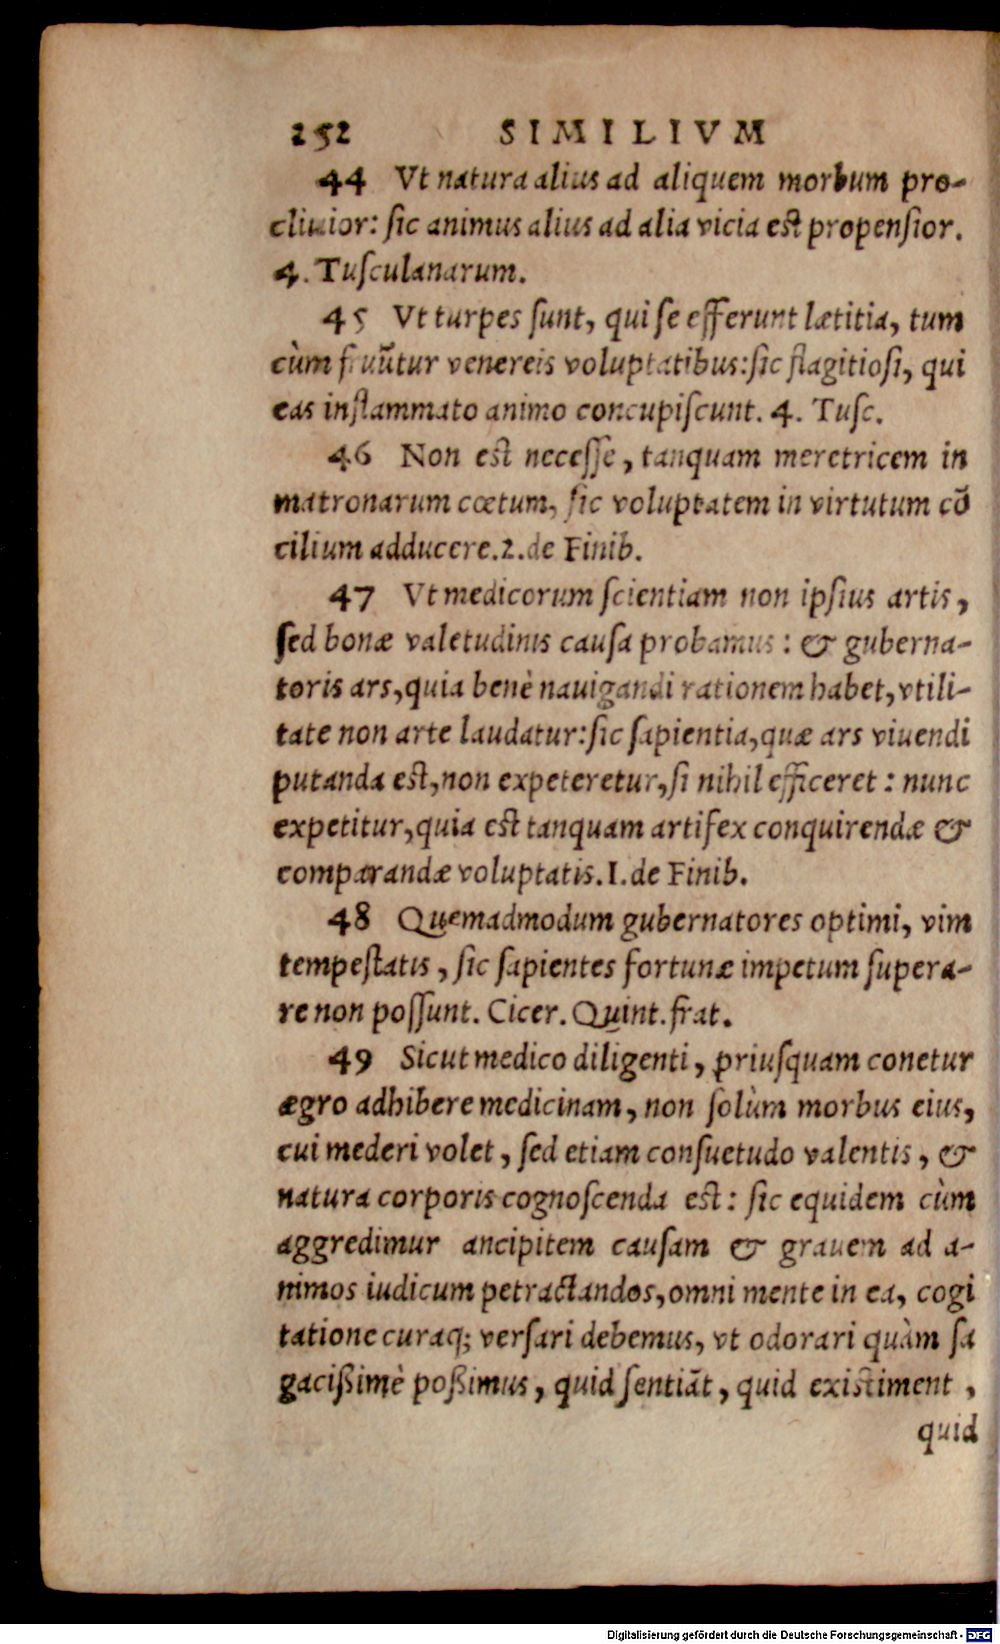 252 SIMILIVM
44 Vt natura alius ad aliquem morbum pro-
cliuior: ſic animus alius ad alia vicia est propenſior.
4. Tuſculanarum.
45 Vt turpes ſunt, qui ſe efferunt lætitia, tum
cùm fruūtur venereis voluptatibus: ſic flagitioſi, qui
eas inflammato animo concupiſcunt. 4. Tuſc.
46 Non est neceſſe, tanquam meretricem in
matronarum cœtum, ſic voluptatem in virtutum cō
cilium adducere. 2. de Finib.
47 Vt medicorum ſcientiam non ipſius artis,
ſed bonæ valetudinis cauſa probamus: & guberna-
toris ars, quia benè nauigandi rationem habet, vtili-
tate non arte laudatur: ſic ſapientia, quæ ars viuendi
putanda est, non expeteretur, ſi nihil efficeret: nunc
expetitur, quia est tanquam artifex conquirendæ &
comparandæ voluptatis. I. de Finib.
48 Quemadmodum gubernatores optimi, vim
tempeſtatis, ſic ſapientes fortunæ impetum ſupera-
re non poſſunt. Cicer. Quint. frat.
49 Sicut medico diligenti, priuſquam conetur
ægro adhibere medicinam, non ſolùm morbus eius,
cui mederi volet, ſed etiam conſuetudo valentis, &
natura corporis cognoſcenda est: ſic equidem cùm
aggredimur ancipitem cauſam & grauem ad a-
nimos iudicum petractandos, omni mente in ea, cogi
tatione curaq; verſari debemus, vt odorari quàm ſa
gacißimè poßimus, quid ſentiāt, quid existiment,
quid
Digitalisierung gefördert durch die Deutsche Forschungsgemeinschaft - DFG